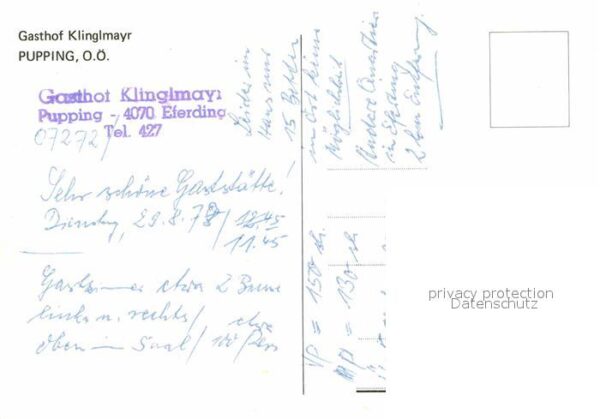 Gasthof Klinglmayr
PUPPING, O.Ö.
Gasthof Klinglmayr
Pupping - 4070 Eferding
Tel. 427
07272/
Sehr schöne Gaststätte!
Dienstag, 29.8.78 / 18.45
11.45
Gastzimmer etwa 2 Räume
links u. rechts / etwa
oben im Saal / 100 Pers
Leider im
Haus nur
15 Betten
im Ort keine
Möglichkeit
Andere Quartiere
in
2 km
VP = 150 ö.S.
HP = 130 ö.S.
Ü =
privacy protection
Datenschutz